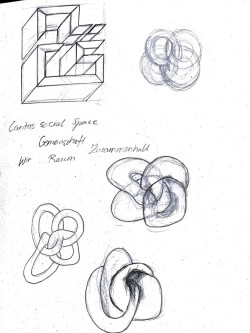 Caritas social Space
Gemeinschaft
Wir Raum Zusammenhalt